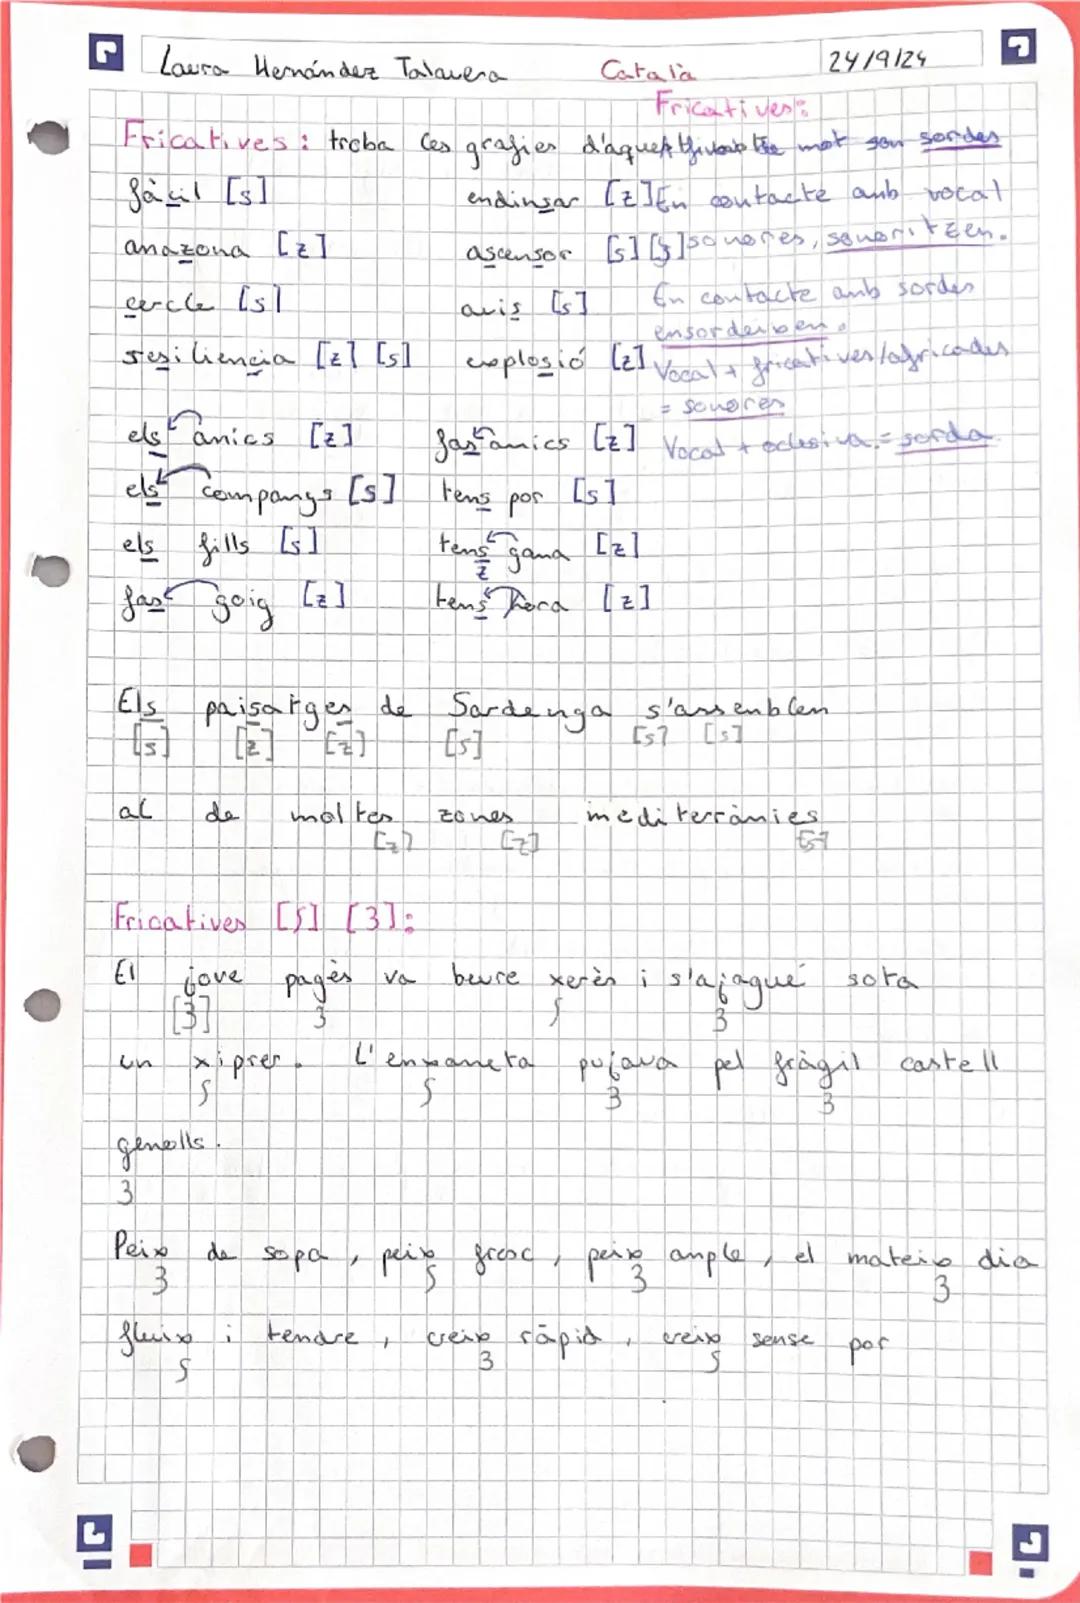 Laura Hernández Talavera Català 24/9/24
Fricatives:
Fricatives: troba les grafies d'aquest mot son sordes
fàcil [s] endinsar [z] En contacte amb vocal
amazona [z] ascensor [s] [z] sonores, sonoritzen.
cercle [s] avis [s] En contacte amb sordes
ensordeixen.
resiliencia [z] [s] explosió [z] Vocal + fricatives/africades
= sonores
els amics [z] fas amics [z] Vocal + oclusiva = sorda
els companys [s] tens por [s]
els fills [s] tens gana [z]
z
fas goig [z] tens hora [z]
Els paisatges de Sardenya s'assemblen
[s] [z] [z] [s] [s] [s]
al de moltes zones mediterrànies
[z] [z] [s]
Fricatives [ʃ] [ʒ]:
El jove pagès va beure xerès i s'ajagué sota
[ʒ] ʒ ʃ ʒ
un xiprer. L'enxaneta pujava pel fràgil castell
ʃ ʃ ʒ ʒ
genolls.
ʒ
Peix de sopa, peix fresc, peix ample, el mateix dia
ʒ ʃ ʒ ʒ
fluix i tendre, creix ràpid, creix sense por
ʃ ʒ ʃ